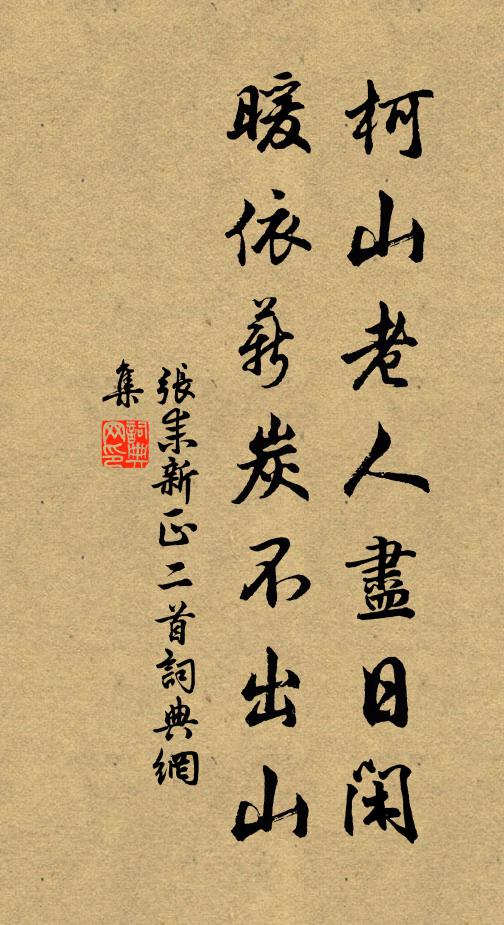 柯山老人盡日閑
暖依薪炭不出山
張耒新正二首詞典網
集
詞典
网印